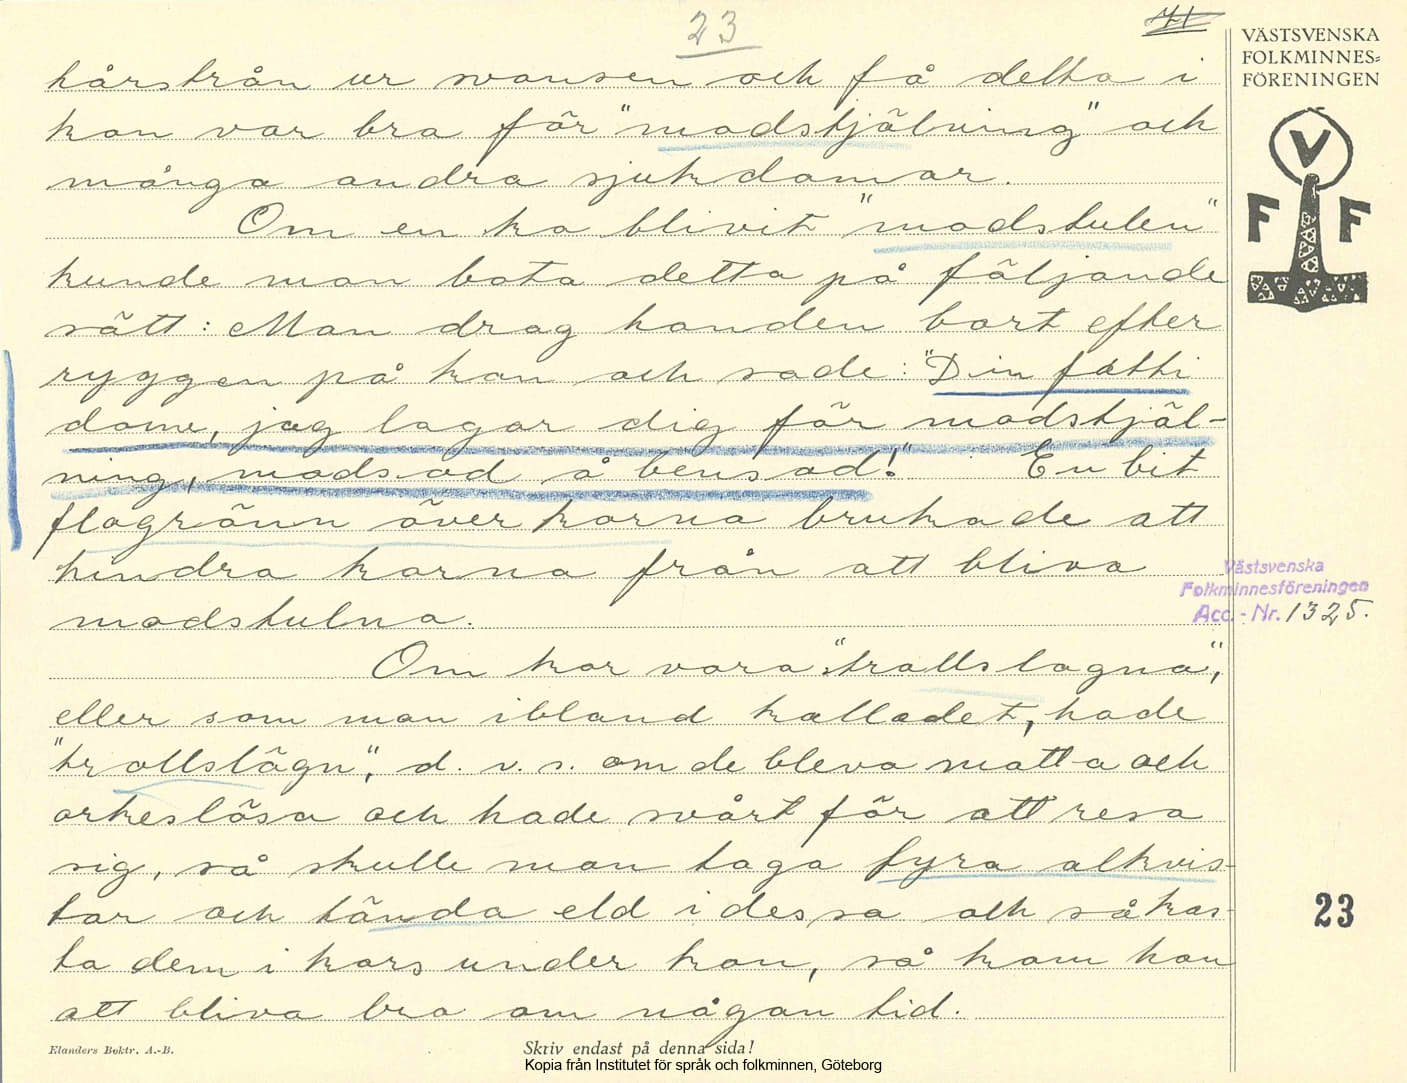 23
71
VÄSTSVENSKA
FOLKMINNES-
FÖRENINGEN
V
F F
hårstrån ur svansen och få detta i
kon var bra för "modstjälning" och
många andra sjukdomar.
Om en ko blivit "modstulen"
kunde man bota detta på följande
sätt: Man drog handen bort efter
ryggen på kon och sade: "Din fåtti
dome, jag lagar dig för modstjäl-
ning, modsod å bensod!" En bit
flogrönn över korna brukade att
hindra korna från att bliva
modstulna.
Västsvenska
Folkminnesföreningen
Acc.-Nr. 1325.
Om kor vara "trollslagna",
eller som man ibland kallade't, hade
"trollslägn", d. v. s. om de bleva matta och
orkeslösa och hade svårt för att resa
sig, så skulle man taga fyra alkvis-
tar och tända eld i dessa och så kas-
ta dem i kors under kon, så kom hon
att bliva bra om någon tid.
23
Elanders Boktr. A.-B.
Skriv endast på denna sida!
Kopia från Institutet för språk och folkminnen, Göteborg